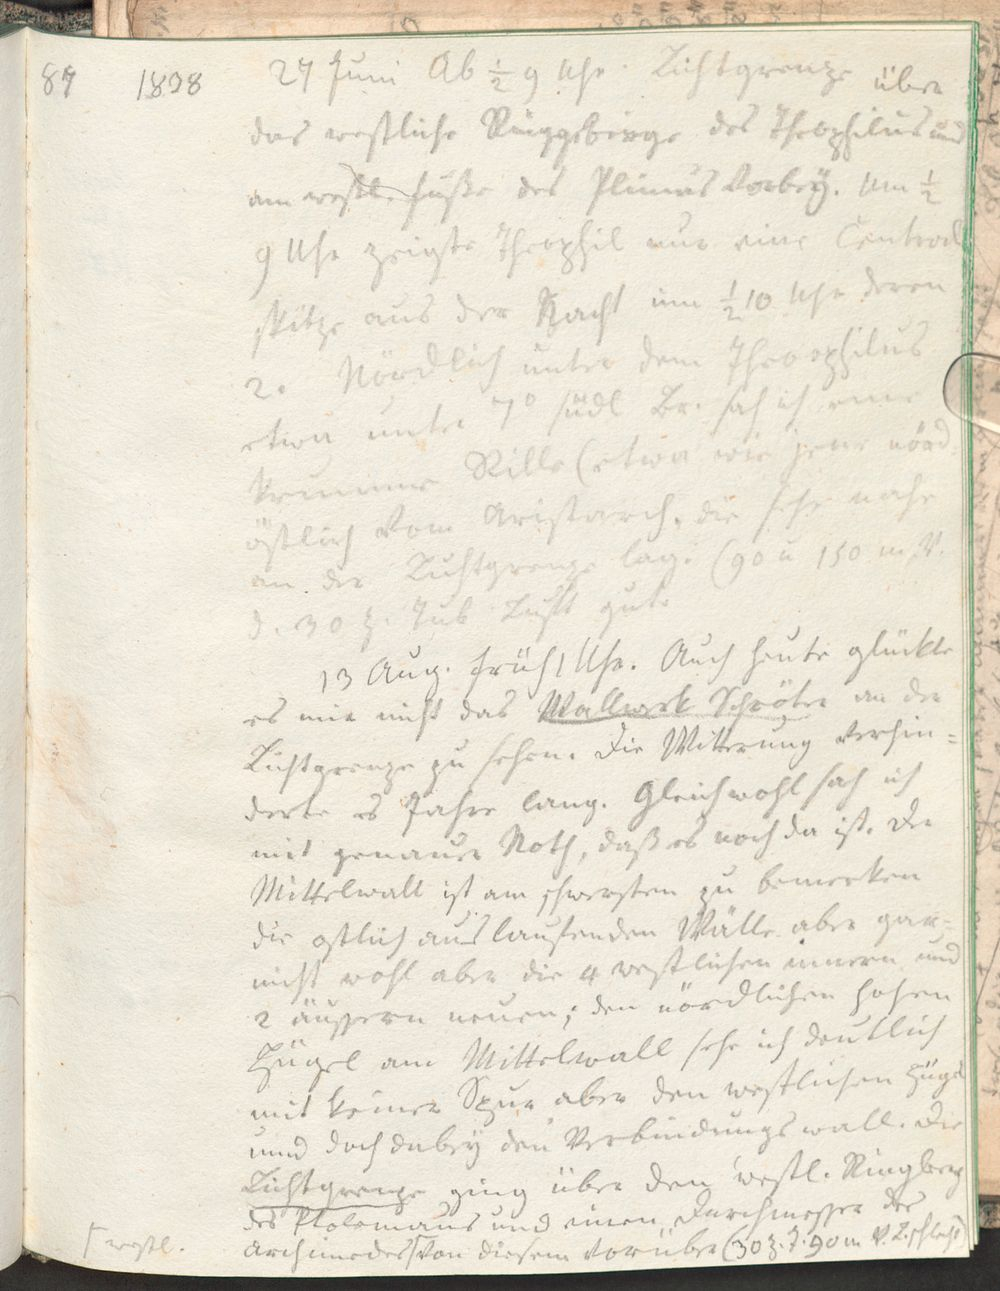 87 1838 27 Juni Ab ½ 9 Uhr. Lichtgrenze über
das westliche Ringgebirge des Theophilus und
am westl. Fuße des Plinius Vorbey. Um ½
9 Uhr zeigte Theophil nur eine Central
spitze aus der Nacht um ½ 10 Uhr deren
2. Nördlich unter dem Theoophilus
etwa unter 7° südl Br. sah ich eine
krumme Rille (etwa wie jene nörd
östlich vom Aristarch, die sehr nahe
an der Lichtgrenze lag. (90 u 150 m. V.
d. 30 z. Tub Luft gut
13 Aug. früh 1 Uhr. Auch heute glückte
es mir nicht das Wallwerk Schröter an der
Lichtgrenze zu sehen. Die Witterung verhin=
derte es Jahre lang. Gleichwohl sah ich
mit genauer Noth, daß es noch da ist. Der
Mittelwall ist am schwersten zu bemerken
die östlich auslaufenden Wälle aber gar=
nicht wohl aber die 4 westlichen innern und
2 äussern neuen; den nördlichen hohen
Hügel am Mittelwall sehe ich deutlich
mit keiner Spur aber den westlichen Hügel
und doch dabey den Verbindungswall. Die
Lichtgrenze ging über den westl. Ringberg
des Ptolomäus und einen Durchmesser des
Archimedes ⌈ von diesem vorüber (30 z. T. 90 m V. L. schlecht)
⌈ westl.